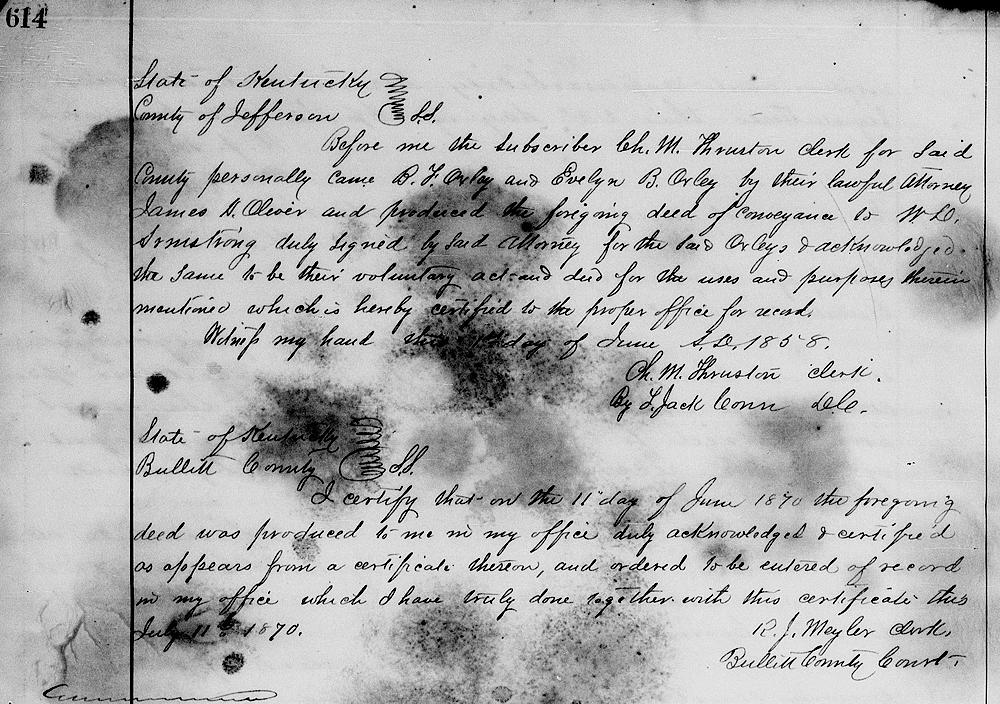 614
State of Kentucky
County of Jefferson SS.
Before me the subscriber Ch. M. Thruston clerk for said
County personally came B. F. Orley and Evelyn B. Orley by their lawful Attorney
James Oliver and produced the foregoing deed of conveyance to W. D.
Armstrong duly signed by said Attorney for the said Orleys & acknowledged
the same to be their voluntary act and deed for the uses and purposes therein
mentioned which is hereby certified to the proper office for record.
Witness my hand this day of June A.D. 1858.
Ch. M. Thruston clerk.
By L. Jack Conn D.C.
State of Kentucky
Bullitt County SS.
I certify that on the 11 day of June 1870 the foregoing
deed was produced to me in my office duly acknowledged & certified
as appears from a certificate thereon, and ordered to be entered of record
in my office which I have truly done together with this certificate this
July 11th 1870.
R. J. Meyler clerk.
Bullitt County Court.